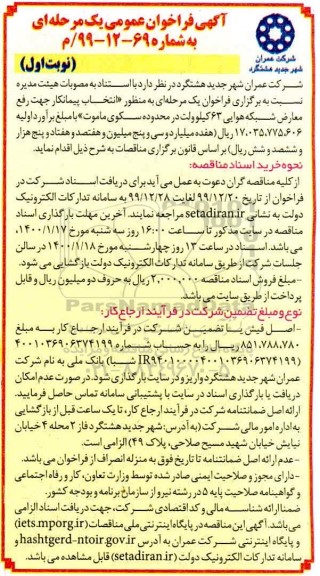 آگهی فراخوان عمومی یک مرحله‌ای
به شماره ۶۹-۱۲-۹۹/م
(نوبت اول)
شرکت عمران
شهر جدید هشتگرد
شرکت عمران شهر جدید هشتگرد در نظر دارد با استناد به مصوبات هیئت مدیره
نسبت به برگزاری فراخوان یک مرحله‌ای به منظور «انتخاب پیمانکار جهت رفع
معارض شبکه هوایی ۶۳ کیلوولت در محدوده سکوی ماموت» با مبلغ برآورد اولیه
۱۷،۰۳۵،۷۷۵،۶۰۶ ریال (هفده میلیارد و سی و پنج میلیون و هفتصد و هفتاد و پنج هزار
و ششصد و شش ریال) بر اساس قانون برگزاری مناقصات به شرح ذیل اقدام نماید.
نحوه خرید اسناد مناقصه:
از کلیه مناقصه گران دعوت به عمل می آید برای دریافت اسناد شرکت در
فراخوان از تاریخ ۹۹/۱۲/۲۰ لغایت ۹۹/۱۲/۲۸ به سامانه تدارکات الکترونیک
دولت به نشانی setadiran.ir مراجعه نمایند. آخرین مهلت بارگذاری اسناد
مناقصه در سایت مذکور تا ساعت ۱۶:۰۰ روز سه شنبه مورخ ۱۴۰۰/۱/۱۷
می باشد. اسناد در ساعت ۱۳ روز چهارشنبه مورخ ۱۴۰۰/۱/۱۸ در سالن
جلسات شرکت از طریق سامانه تدارکات الکترونیک دولت بازگشایی می شود.
-مبلغ فروش اسناد مناقصه ۲،۰۰۰،۰۰۰ ریال به حروف دو میلیون ریال و قابل
پرداخت از طریق سایت می باشد.
نوع و مبلغ تضمین شرکت در فرآیند ارجاع کار:
- اصل فیش یا تضمین شرکت در فرآیند ارجاع کار به مبلغ
۸۵۱،۷۸۸،۷۸۰ ریال را به حساب شماره ۴۰۰۱۰۳۶۹۰۶۳۷۴۱۹۹
شبا) بانک ملی به نام شرکت
عمران شهر جدید هشتگرد واریز و در سایت بارگذاری شود. در صورت عدم امکان
دریافت یا بارگذاری اسناد در سایت با پشتیبانی سامانه تماس حاصل فرمایید.
ارائه اصل ضمانتنامه شرکت در فرآیند ارجاع کار، تا یک ساعت قبل از بازگشایی
به اداره امور مالی شرکت (به آدرس: شهر جدید هشتگرد فاز ۲ محله ۴ خیابان
نیایش خیابان شهید مسیح صلاحی، پلاک ۴۹) الزامی است.
-عدم ارائه اصل ضمانتنامه تا تاریخ فوق به منزله انصراف از فراخوان می باشد.
-دارای مجوز و صلاحیت ایمنی صادر شده توسط وزارت تعاون، کار و رفاه اجتماعی
و گواهینامه صلاحیت پایه ۵ در رشته نیرو از سازمان برنامه و بودجه کشور.
ضمنا ارائه شناسه ملی و کد اقتصادی شرکت، جهت دریافت اسناد الزامی
می باشد. آگهی این مناقصه در پایگاه اینترنتی ملی مناقصات (iets.mporg.ir)
و پایگاه اینترنتی شرکت عمران به آدرس hashtgerd-ntoir.gov.ir و
سامانه تدارکات الکترونیک دولت (setadiran.ir) قابل مشاهده می باشد.